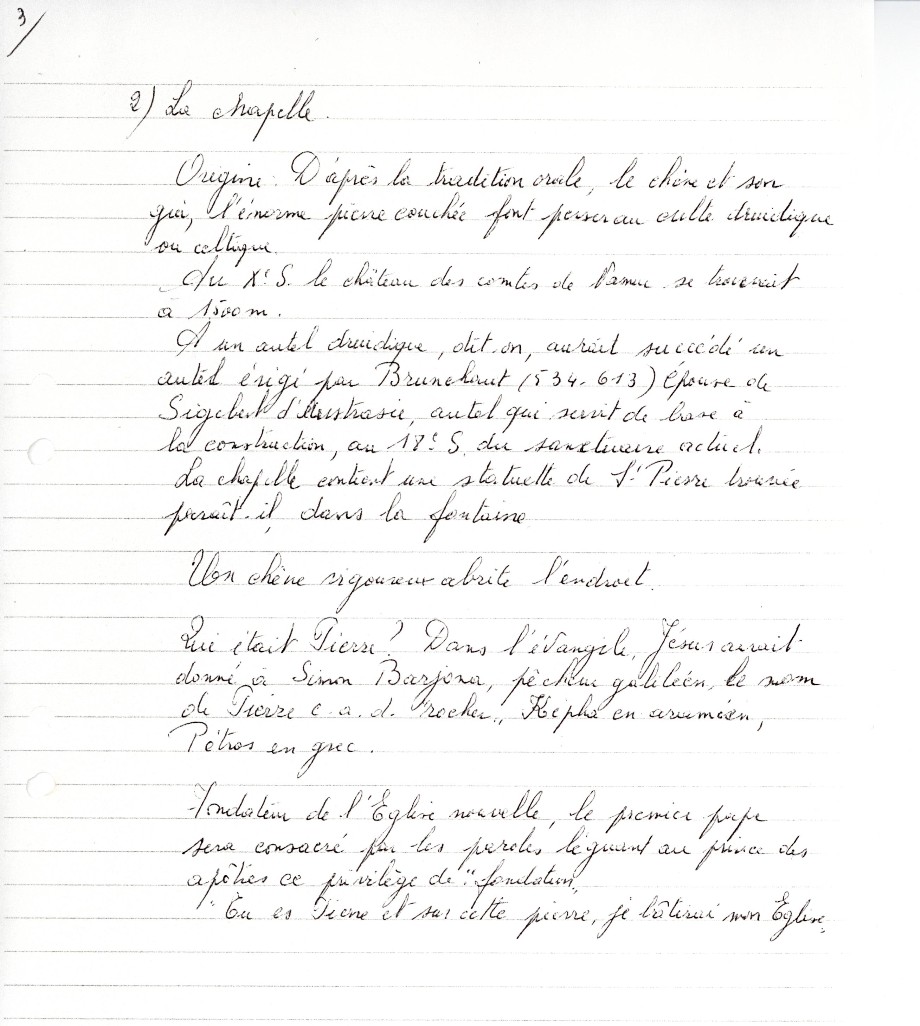 3/
2) La chapelle.
Origine : D'après la tradition orale, le chêne et son
gui, l'énorme pierre couchée font penser au culte druidique
ou celtique.
Au Xe S. le château des comtes de Namur se trouvait
à 1500 m.
A un autel druidique, dit-on, aurait succédé un
autel érigé par Brunehaut (534-613) Epouse de
Sigebert d'Austrasie, autel qui servit de base à
la construction, au 18e S. du sanctuaire actuel.
La chapelle contient une statuette de St Pierre trouvée
paraît-il, dans la fontaine
Un chêne vigoureux abrite l'endroit.
Qui était Pierre? Dans l'évangile, Jésus aurait
donné à Simon Barjona, pêcheur galiléen, le nom
de Pierre c.a.d. "rocher", Képha en araméen,
Pétros en grec.
Fondateur de l'Eglise nouvelle, le premier pape
sera consacré par les paroles léguant au prince des
apôtres ce privilège de "fondation"
"Tu es Pierre et sur cette pierre, je bâtirai mon Eglise"